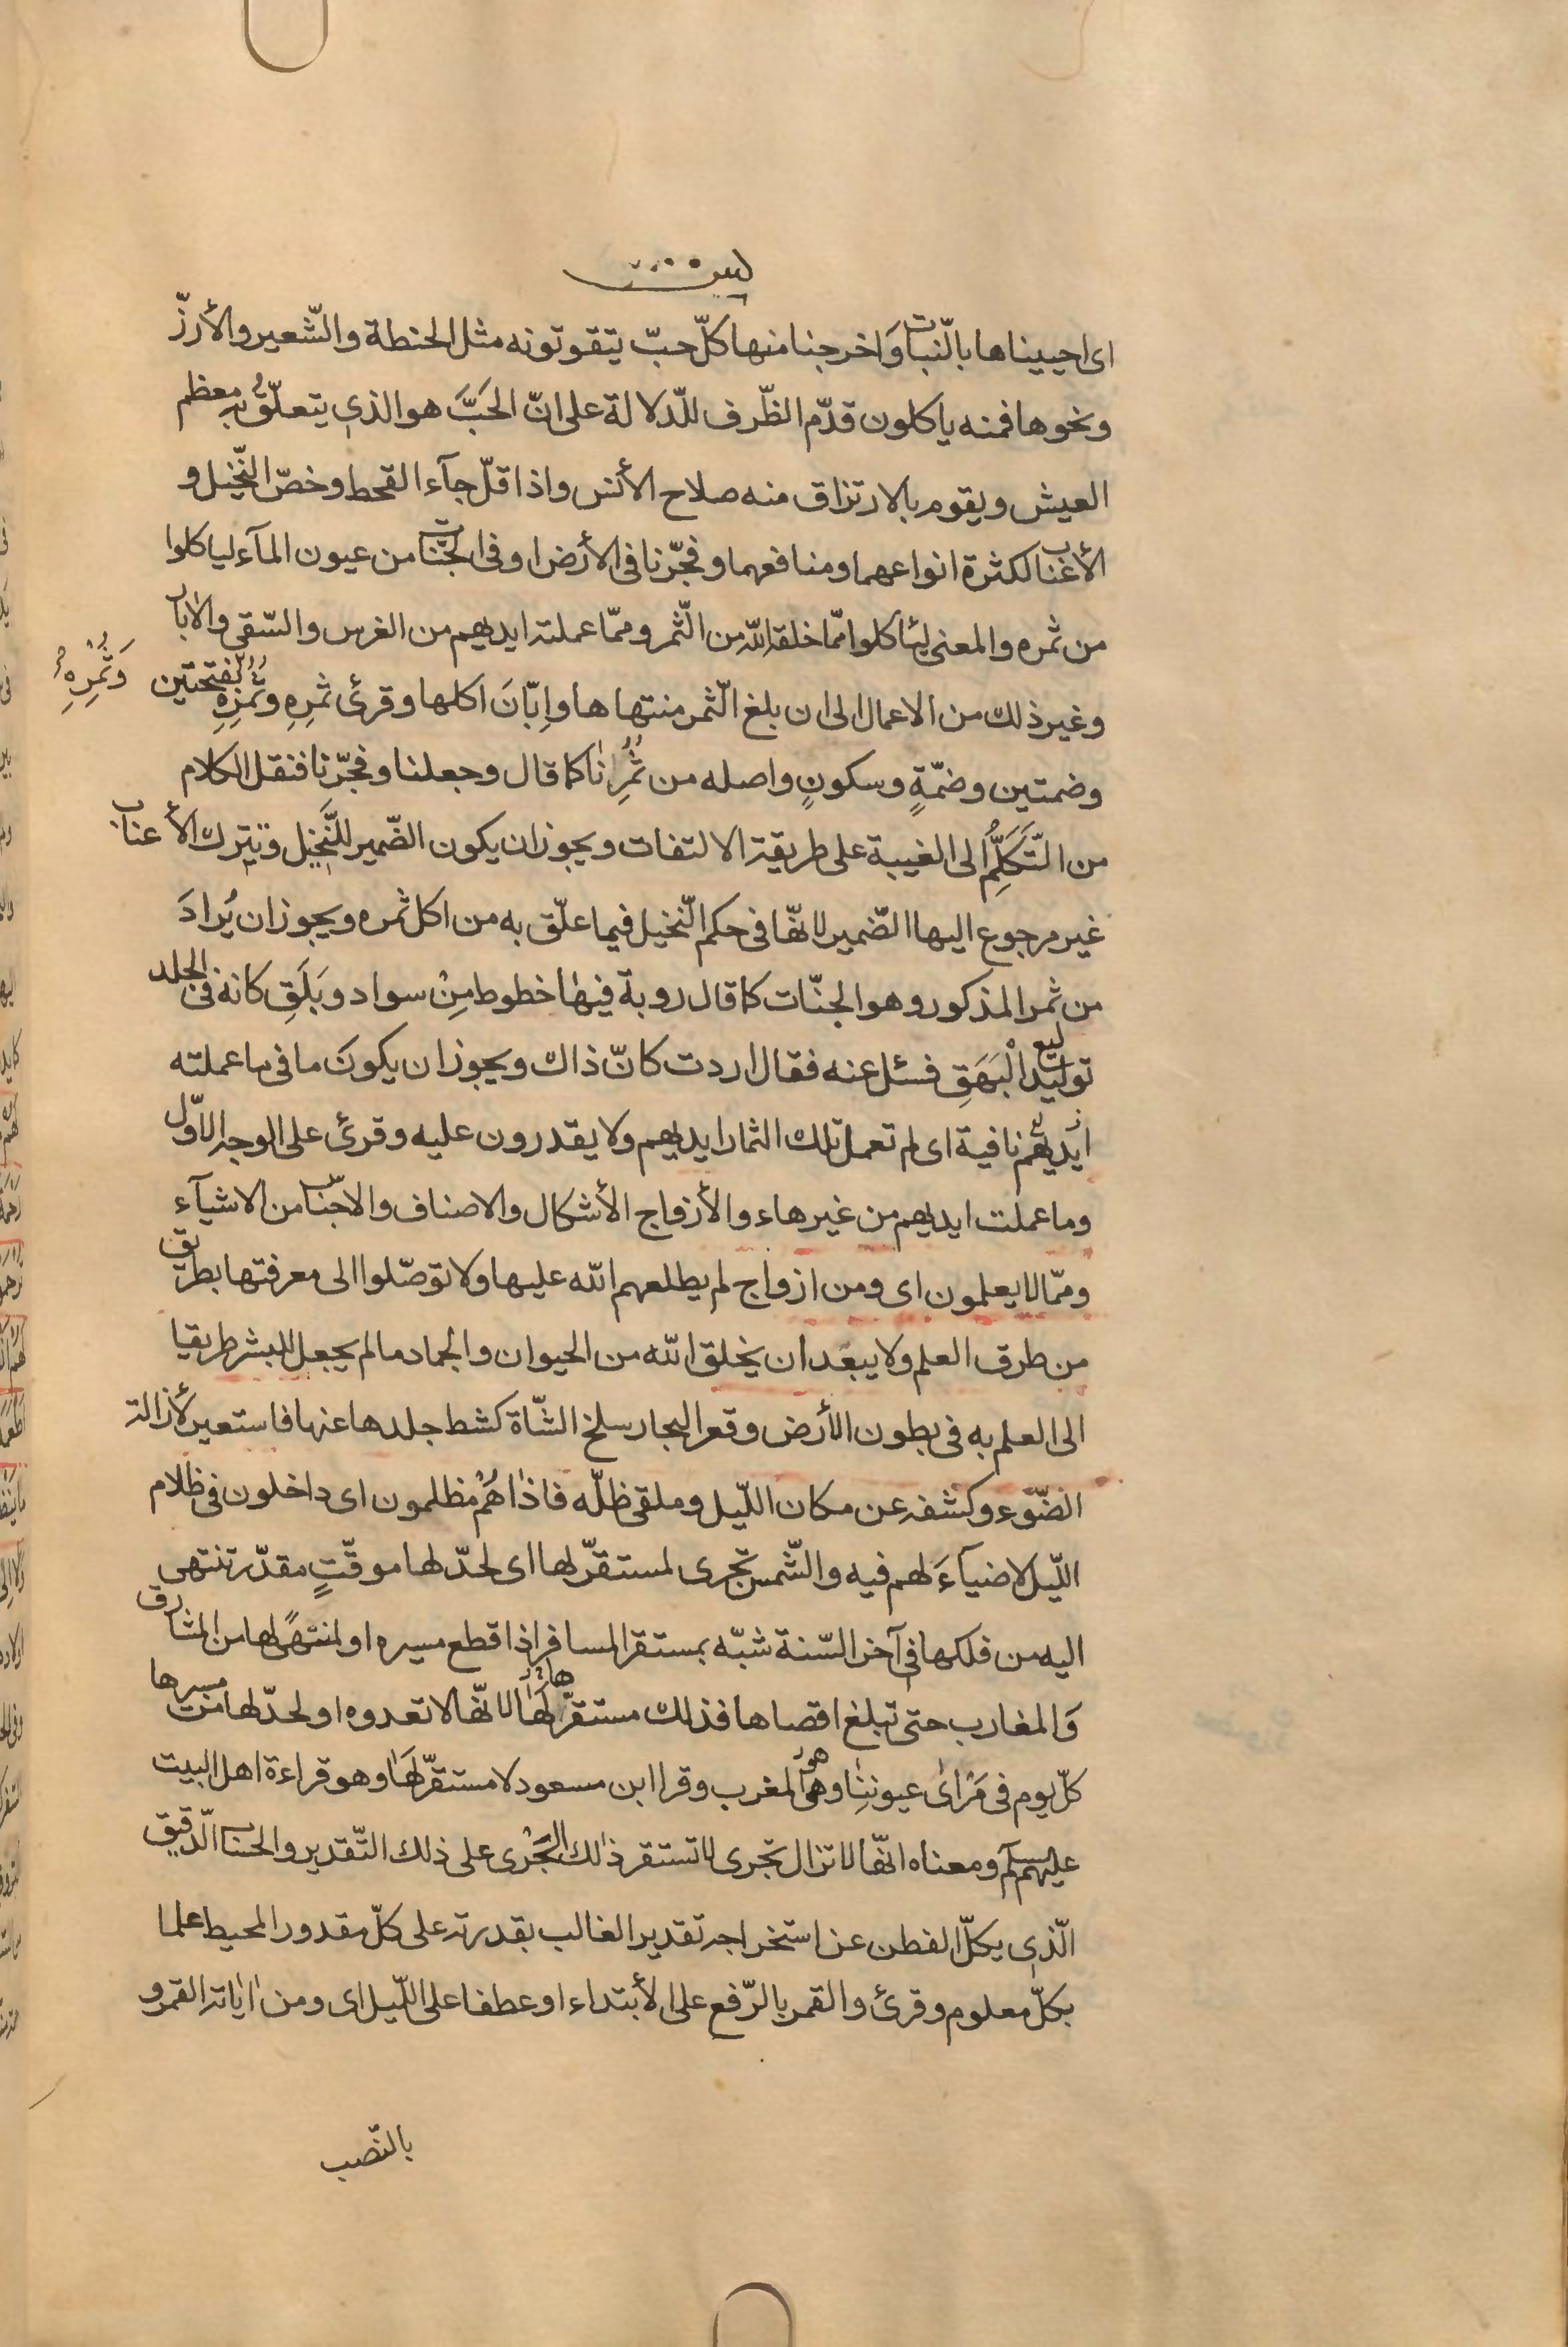 يس
اى احييناها بالنّبات وَاخرجنا منها كلّ حبّ يتقوتونه مثل الحنطة والشّعير والأرزّ
ونحوها فمنه ياكلون قدّم الظّرف للّدلالة على انّ الحَبَّ هو الذى يتعلّق به معظم
العيش ويقوم بالارتزاق منه صلاح الأنس واذا قلّ جآء القحط وخصّ النّخيل و
الأعناب لكثرة انواعهما ومنافعهما وفجّرنا فى الأرض او فى الجنّات من عيون المآء لياكلوا
من ثمره والمعنى ليأكلوا ممّا خلقه اللّه من الثّمر وممّا عملته ايديهم من الغرس والسّقى والابار
وغير ذلك من الاعمال الى ان بلغ الثّمر منتهاها وإبّانَ اكلها وقرئ ثمرِهِ وثُمُرِهِ بفتحتين وَثُمْرِهِ
وضمتين وضمّةٍ وسكونٍ واصله من ثَمَرِنا كما قال وجعلنا وفجّرنا فنقل الكلام
من التَّكَلُّمِ الى الغيبة على طريقة الالتفات ويجوز ان يكون الضّمير للنَّخيل وتترك الأعناب
غير مرجوع اليها الضّمير لانهّا فى حكم النّخيل فيما علّق به من اكل ثمره ويجوز ان يُرادَ
من ثمر المذكور وهو الجنّات كما قال روبة فيها خطوط مِنْ سواد وبَلَقِ كانه فى الجلد
توليع الْبَهَقِ فسئل عنه فقال اردت كانّ ذاك ويجوز ان يكونَ ما فى ما عملته
ايديهم نافية اى لم تعمل تلك الثمار ايديهم ولا يقدرون عليه وقرئ على الوجه الاوّل
وما عملت ايديهم من غير هاء والأزواج الأشكال والاصناف والاجناس من الاشيآء
وممّا لا يعلمون اى ومن ازواج لم يطلعهم اللّه عليها ولا توصّلوا الى معرفتها بطريق
من طرق العلم ولا يبعَد ان يخلق اللّه من الحيوان والجماد ما لم يجعل للبشر طريقا
الى العلم به فى بطون الأرض وقعر البحار سلخ الشّاة كشط جلدها عنها فاستعير لأزالة
الضّوَء وكشفه عن مكان اللّيل وملقى ظلّه فاذا هُمْ مظلمون اى داخلون فى ظلام
اللّيل لا ضيآءَ لهم فيه والشّمس تجرى لمستقرّ لها اى لحدّ لها موقّتٍ مقدّر تنتهى
اليه من فلكها فى آخر السّنة شبّه بمستقر المسافر اذا قطع مسيره او لمنتهًى لها من المشارق
وَالمغارب حتى تبلغ اقصاها فذلك مستقرّها لانهّا لا تعدوه او لحدّ لها من مسيرها
كلّ يوم فى مَرْاىٰ عيوننِا وهو المغرب وقرا ابن مسعود لا مستقرّ لهَا وهو قراءة اهل البيت
عليهم السلم ومعناه انهّا لا تزال تجرى لا تستقر ذلك الجَرْى على ذلك التّقدير والحساب الدّقيق
الّذى يكلّ الفطن عن استخراجه تقدير الغالب بقدرته على كلّ مقدور المحيط علما
بكلّ معلوم وقرئ والقمر بالرّفع على الأبتداء او عطفا على اللّيل اى ومن اياته القمر و
بالنّصب